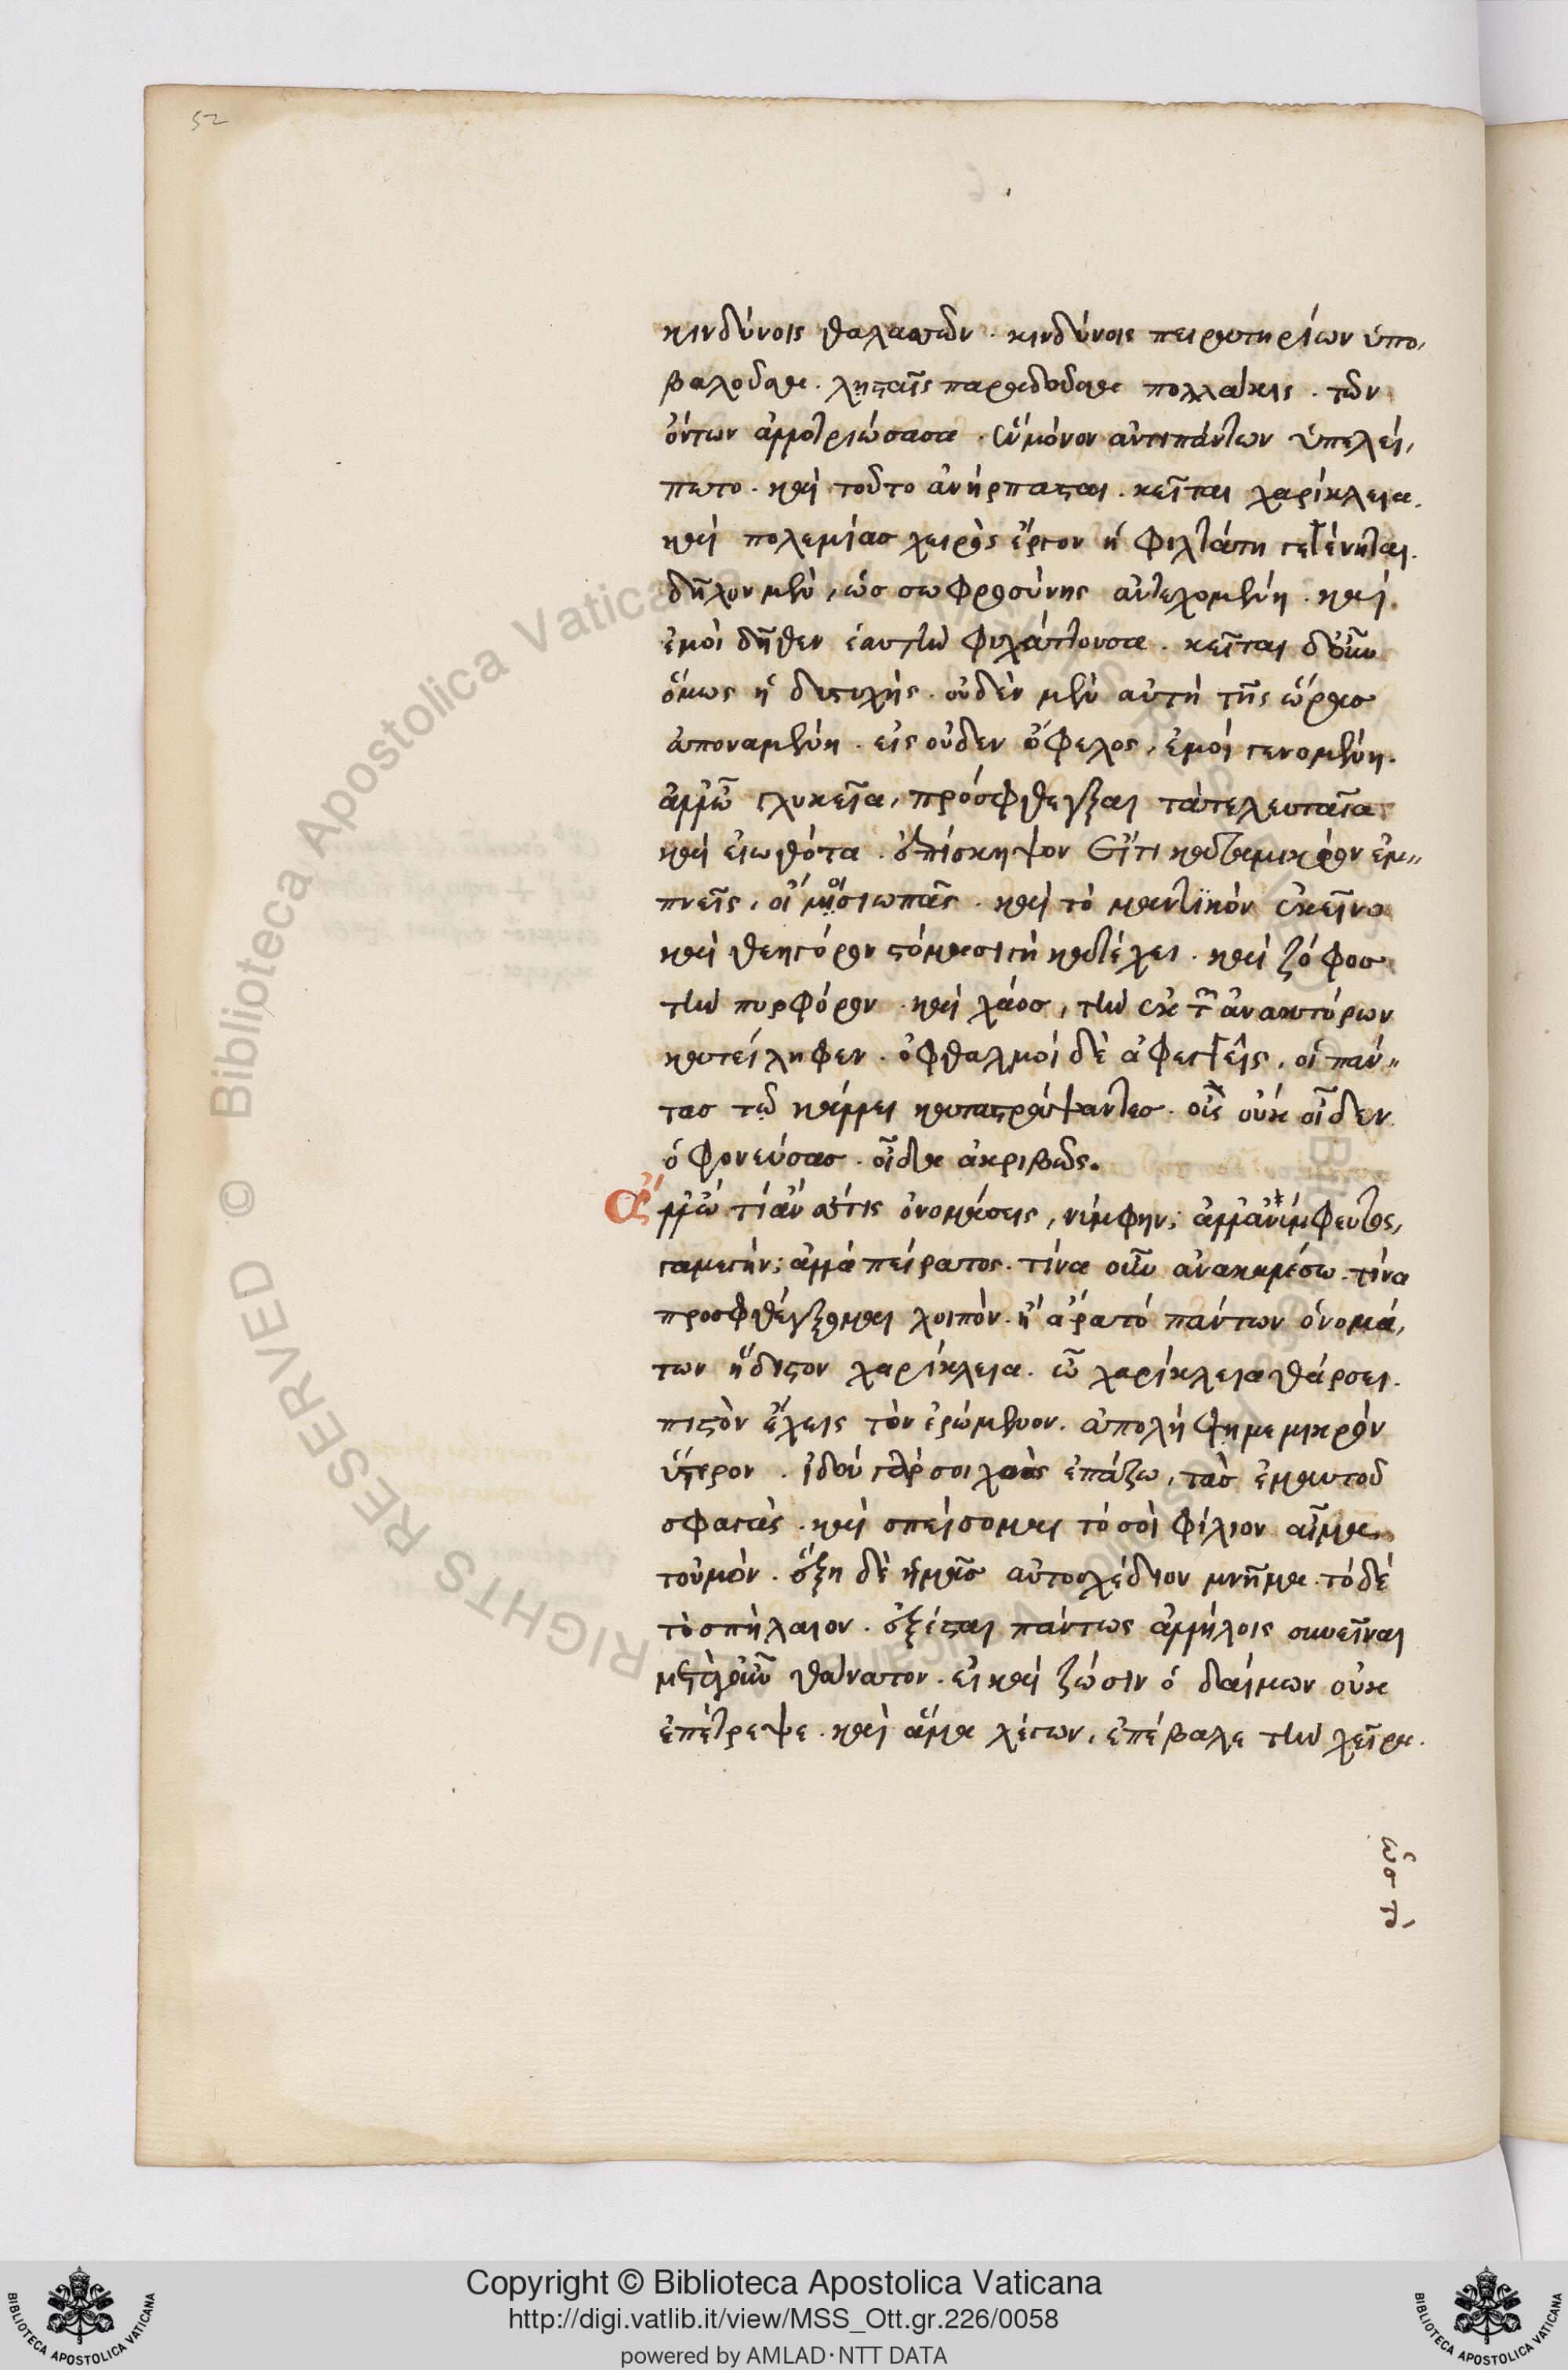 52
κινδύνοις θαλασσῶν· κινδύνοις πειρατηρίων ὑπο,
βαλοῦσα· λῃσταῖς παραδοῦσα πολλάκις· τῶν
ὄντων ἀλλοτριώσασα· ἓν μόνον ἀντιπάντων ὑπελεί,
πετο· καὶ τοῦτο ἀνήρπασται· κεῖται χαρίκλεια.
καὶ πολεμίας χειρὸς ἔργον ἡ φιλτάτη γεγένηται.
δῆλον μὲν, ὡς σωφροσύνης ἀντεχομένη· καὶ
ἐμοὶ δῆθεν ἑαυτὴν φυλάττουσα· κεῖται δ' οὖν
ὅμως ἡ δυστυχής· οὐδὲν μὲν αὐτὴ τῆς ὥρας
ἀποναμένη· εἰς οὐδὲν ὄφελος, ἐμοὶ γενομένη.
ἀλλ' ὦ γλυκεῖα, πρόσφθεγξαι τὰ τελευταῖα
καὶ εἰωθότα· ἐπίσκηψον εἴ τι καὶ καταμικρὸν ἐμ,,
πνεῖς, οἴμοι σιωπᾶς· καὶ τὸ μαντικὸν ἐκεῖνο
καὶ θεηγόρον στόμα σιγὴ κατέχει· καὶ ζόφος
τὴν πυρφόρον· καὶ χάος, τὴν ἐκ τῶν ἀνακτόρων
κατείληφεν· ὀφθαλμοὶ δὲ ἀφεγγεῖς, οἱ πάν,,
τας τῷ κάλλει καταστράψαντες· οὓς οὐκ οἶδεν
ὁ φονεύσας· οἶδα ἀκριβῶς.
ἀλλ' ὢ τί ἄν σέ τις ὀνομάσειε, νύμφην; ἀλλ' ἀνύμφευτος,
γαμετήν; ἀλλ' ἀπείρατος· τίνα οὖν ἀνακαλέσω· τίνα
προσφθέγξομαι λοιπόν· ἢ ἄρα τὸ πάντων ὀνομά,
των ἥδιστον χαρίκλεια· ὦ χαρίκλεια θάρσει.
πιστὸν ἔχεις τὸν ἐρώμενον· ἀπολήψῃ με μικρὸν
ὕστερον· ἰδοὺ γάρ σοι χοὰς ἐπάξω, τὰς ἐμαυτοῦ
σφαγάς· καὶ σπείσομαι τὸ σοὶ φίλιον αἷμα
τοὐμόν· ἕξει δὲ ἡμᾶς αὐτοσχέδιον μνῆμα· τόδε
τὸ σπήλαιον· ἐξέσται πάντως ἀλλήλοις συνεῖναι
μετὰ γοῦν θάνατον· εἰ καὶ ζῶσιν ὁ δαίμων οὐκ
ἐπέτρεψε· καὶ ἅμα λέγων, ἐπέβαλε τὴν χεῖρα.
Copyright © Biblioteca Apostolica Vaticana
http://digi.vatlib.it/view/MSS_Ott.gr.226/0058
powered by AMLAD·NTT DATA